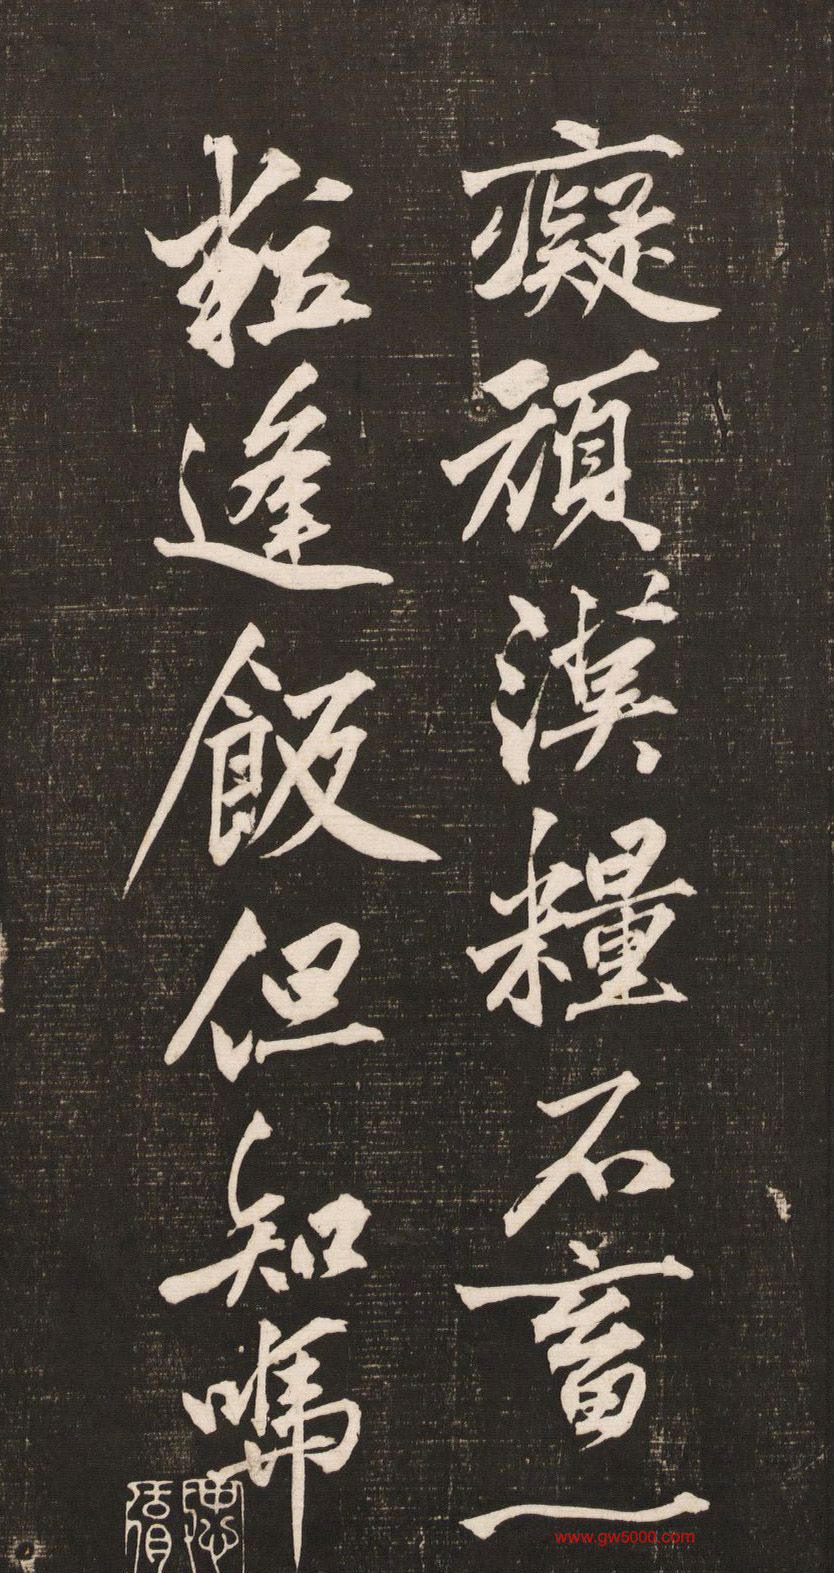 癡頑漢糧不畜一
粒逢飯但知哺
www.gw5000.com